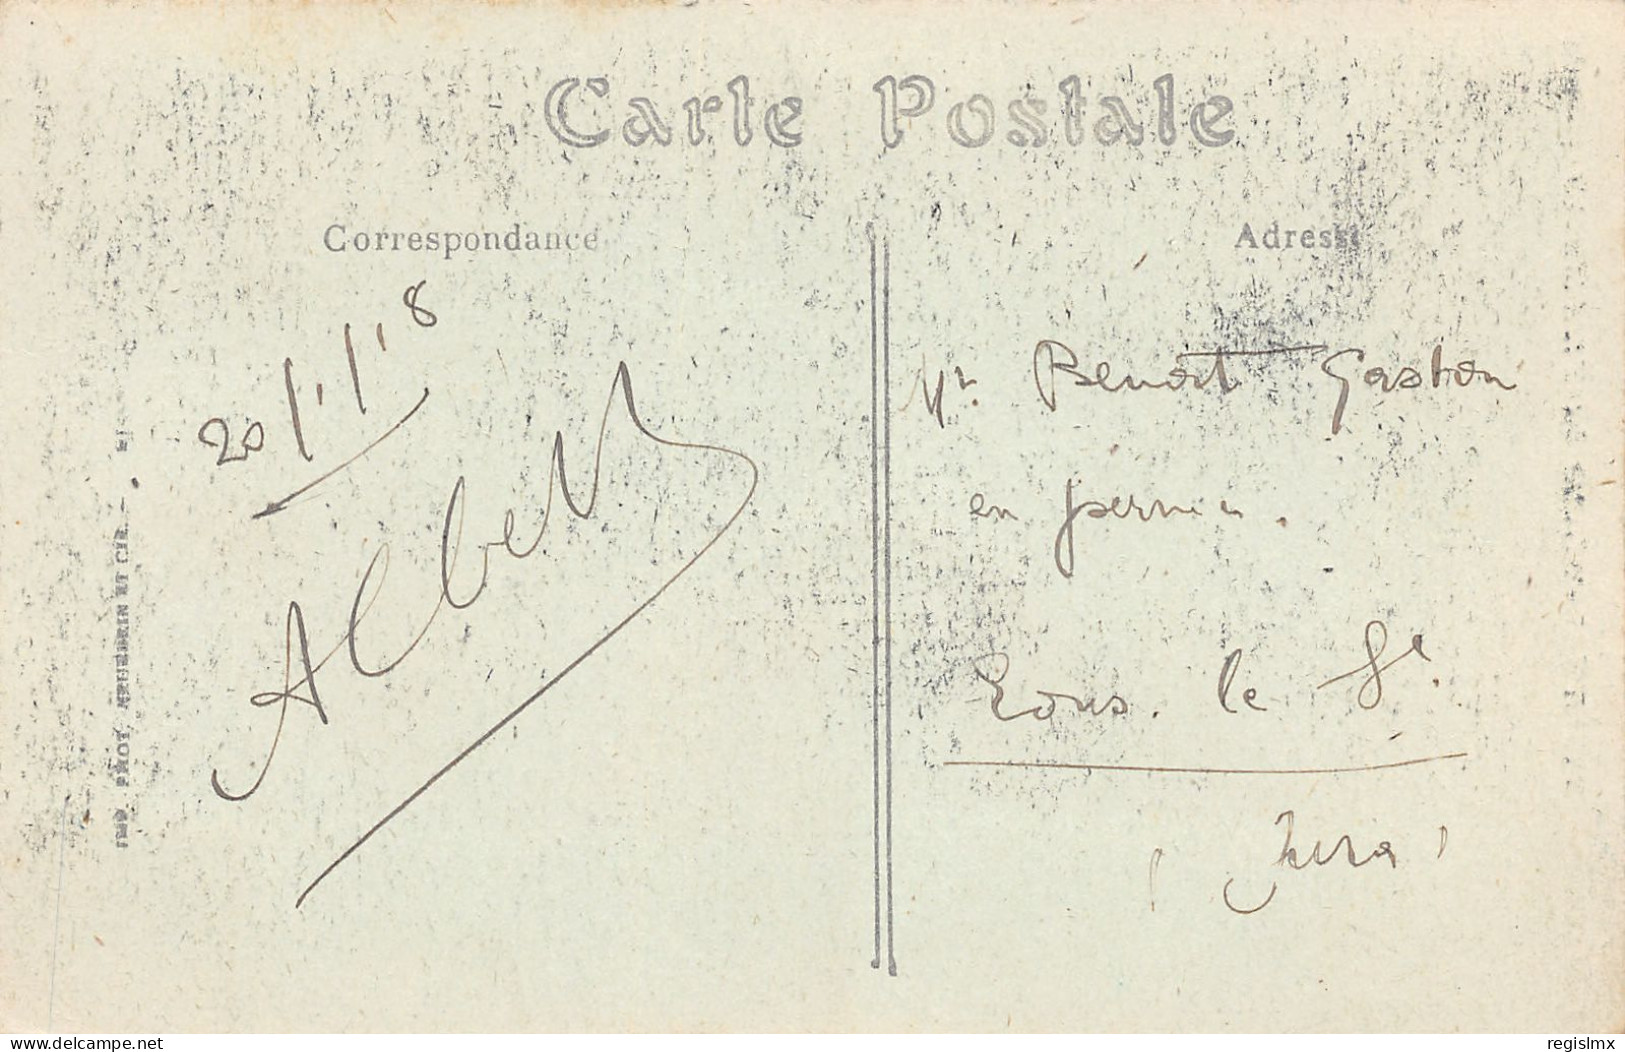 Carte Postale
Correspondance
Adresse
20/1/18
Albert
Mr. Benoit Gaston
en Jsernin.
Lons. le Sl.
(Jura)
IMP. PHOT. NEURDEIN ET CIE. –
delcampe.net
regislmx